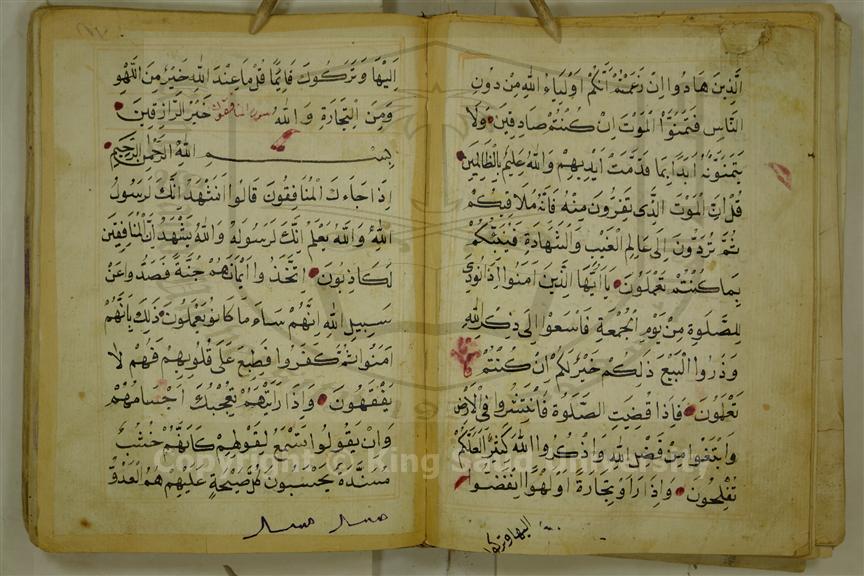 الَّذِينَ هَادُوا اِنْ زَعَمْتُمْ اَنَّكُمْ اَوْلِيَاءُ اللهِ مِنْ دُونِ
النَّاسِ فَتَمَنَّوُا الْمَوْتَ اِنْ كُنْتُمْ صَادِقِينَ وَلَا
يَتَمَنَّوْنَهُ اَبَدًا بِمَا قَدَّمَتْ اَيْدِيهِمْ وَاللهُ عَلِيمٌ بِالظَّالِمِينَ
قُلْ اِنَّ الْمَوْتَ الَّذِي تَفِرُّونَ مِنْهُ فَاِنَّهُ مُلَاقِيكُمْ
ثُمَّ تُرَدُّونَ اِلَى عَالِمِ الْغَيْبِ وَالشَّهَادَةِ فَيُنَبِّئُكُمْ
بِمَا كُنْتُمْ تَعْمَلُونَ يَا اَيُّهَا الَّذِينَ اٰمَنُوا اِذَا نُودِيَ
لِلصَّلٰوةِ مِنْ يَوْمِ الْجُمُعَةِ فَاسْعَوْا اِلَى ذِكْرِ اللهِ
وَذَرُوا الْبَيْعَ ذٰلِكُمْ خَيْرٌ لَكُمْ اِنْ كُنْتُمْ
تَعْلَمُونَ فَاِذَا قُضِيَتِ الصَّلٰوةُ فَانْتَشِرُوا فِي الْاَرْضِ
وَابْتَغُوا مِنْ فَضْلِ اللهِ وَاذْكُرُوا اللهَ كَثِيرًا لَعَلَّكُمْ
تُفْلِحُونَ وَاِذَا رَاَوْ تِجَارَةً اَوْ لَهْوًا انْفَضُّوا
اليها وتركوا
اِلَيْهَا وَتَرَكُوكَ قَائِمًا قُلْ مَا عِنْدَ اللهِ خَيْرٌ مِنَ اللَّهْوِ
وَمِنَ التِّجَارَةِ وَاللهُ سورة المنافقون خَيْرُ الرَّازِقِينَ
بِسْمِ اللهِ الرَّحْمٰنِ الرَّحِيمِ
اِذَا جَاءَكَ الْمُنَافِقُونَ قَالُوا نَشْهَدُ اِنَّكَ لَرَسُولُ
اللهِ وَاللهُ يَعْلَمُ اِنَّكَ لَرَسُولُهُ وَاللهُ يَشْهَدُ اِنَّ الْمُنَافِقِينَ
لَكَاذِبُونَ اِتَّخَذُوا اَيْمَانَهُمْ جُنَّةً فَصَدُّوا عَنْ
سَبِيلِ اللهِ اِنَّهُمْ سَاءَ مَا كَانُوا يَعْمَلُونَ ذٰلِكَ بِاَنَّهُمْ
اٰمَنُوا ثُمَّ كَفَرُوا فَطُبِعَ عَلَى قُلُوبِهِمْ فَهُمْ لَا
يَفْقَهُونَ وَاِذَا رَاَيْتَهُمْ تُعْجِبُكَ اَجْسَامُهُمْ
وَاِنْ يَقُولُوا تَسْمَعْ لِقَوْلِهِمْ كَاَنَّهُمْ خُشُبٌ
مُسَنَّدَةٌ يَحْسَبُونَ كُلَّ صَيْحَةٍ عَلَيْهِمْ هُمُ الْعَدُوُّ
Copyright © King Saud University